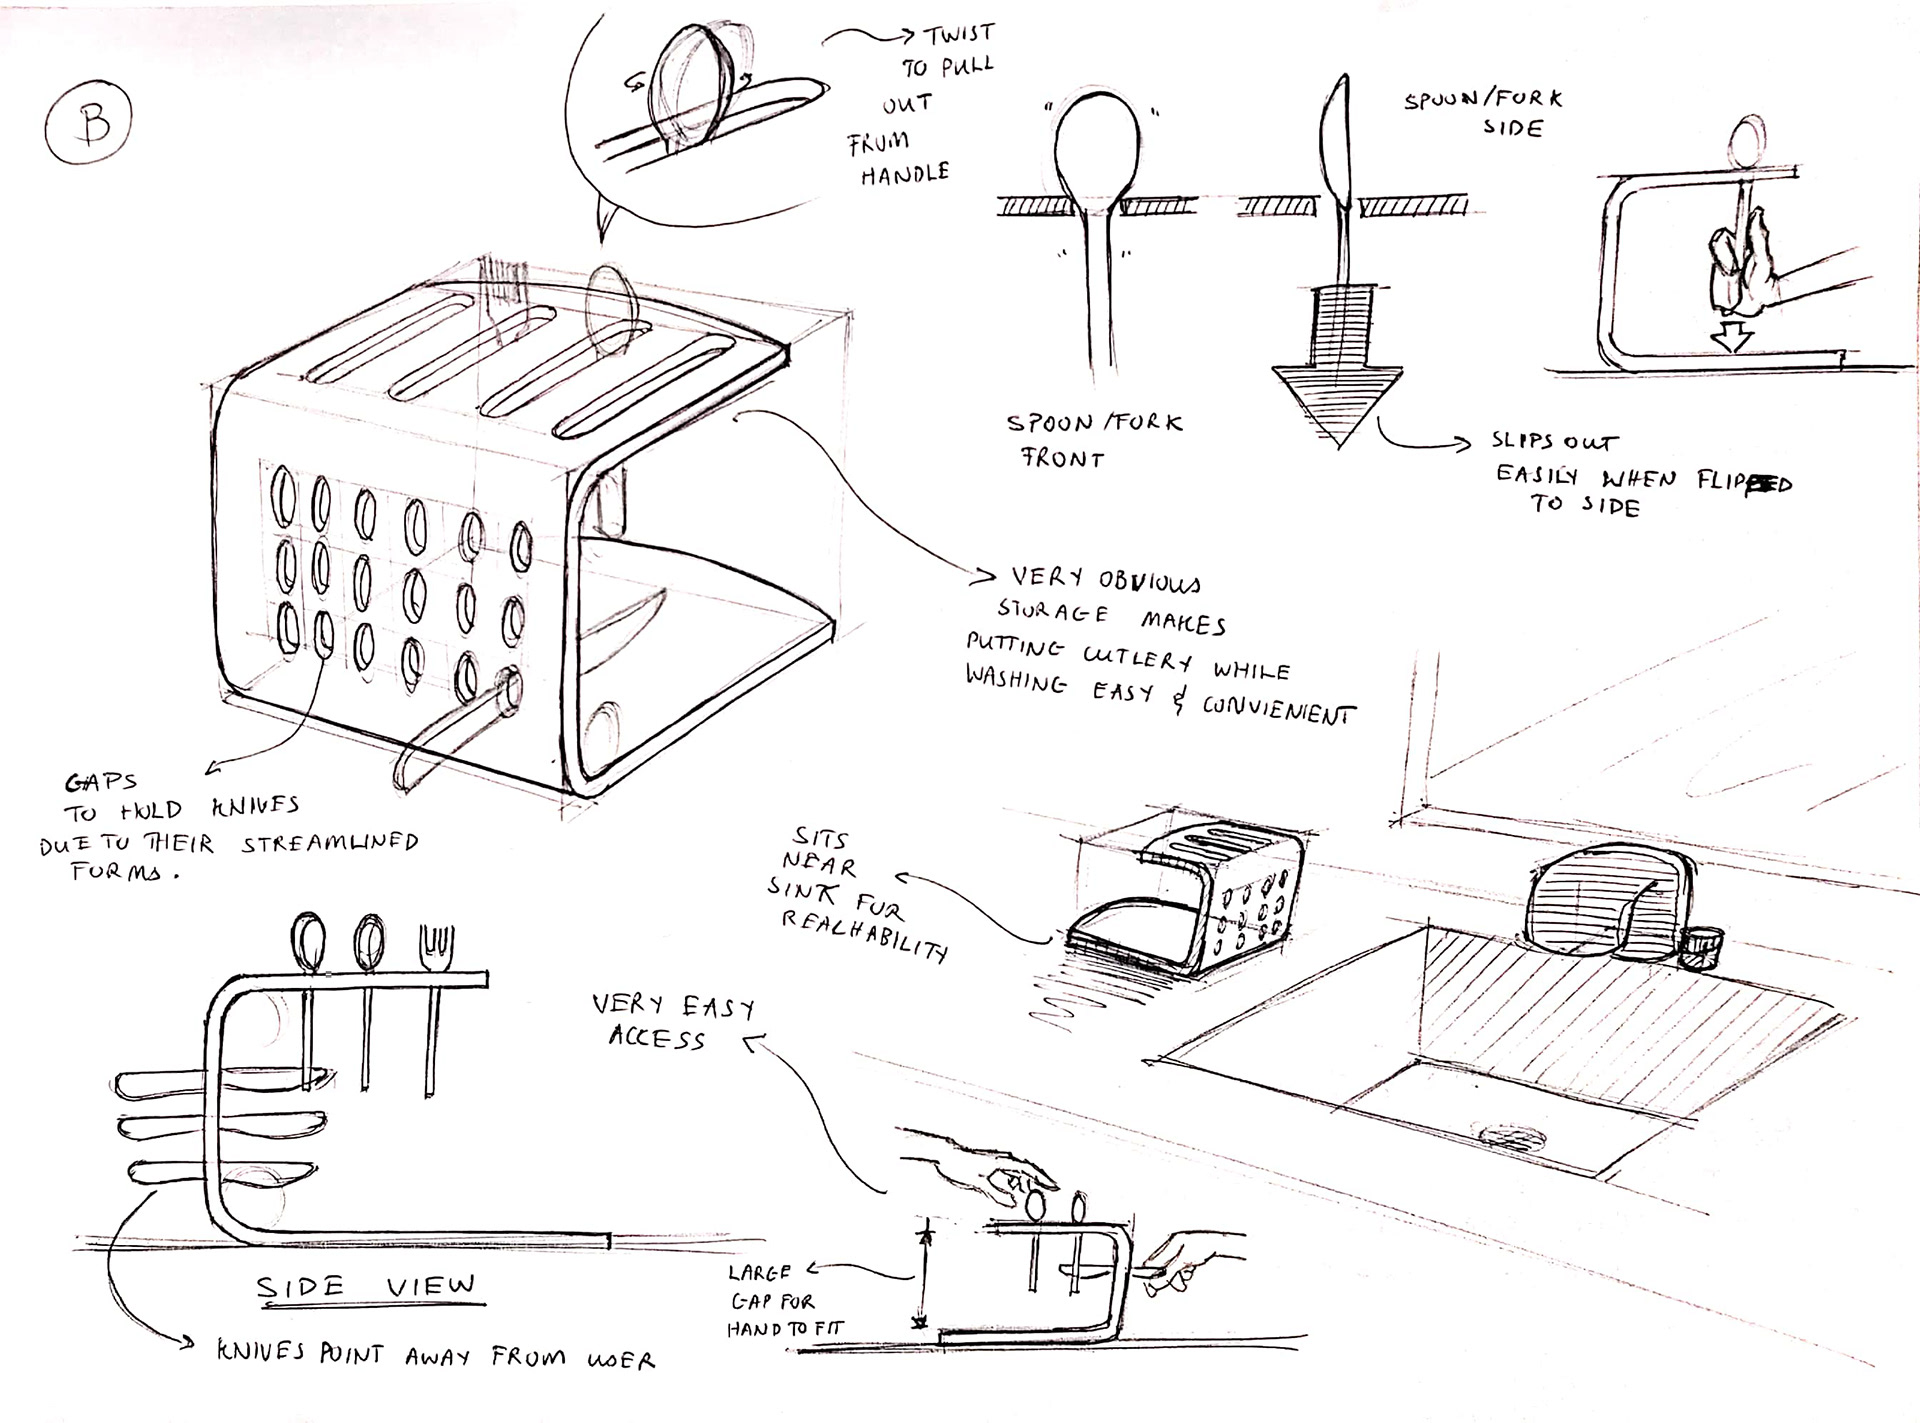 B
TWIST
TO PULL
OUT
FRUM
HANDLE
SPUUN/FURK
SIDE
SPOON/FURK
FRONT
SLIPS OUT
EASILY WHEN FLIPPED
TO SIDE
VERY OBVIOUS
STURAGE MAKES
PUTTING CUTLERY WHILE
WASHING EASY & CONVIENIENT
GAPS
TO HULD KNIVES
DUE TO THEIR STREAMLINED
FURMS.
SITS
NEAR
SINK FUR
REALHABILITY
VERY EASY
ACCESS
LARGE
GAP FOR
HAND TO FIT
SIDE VIEW
KNIVES POINT AWAY FROM USER